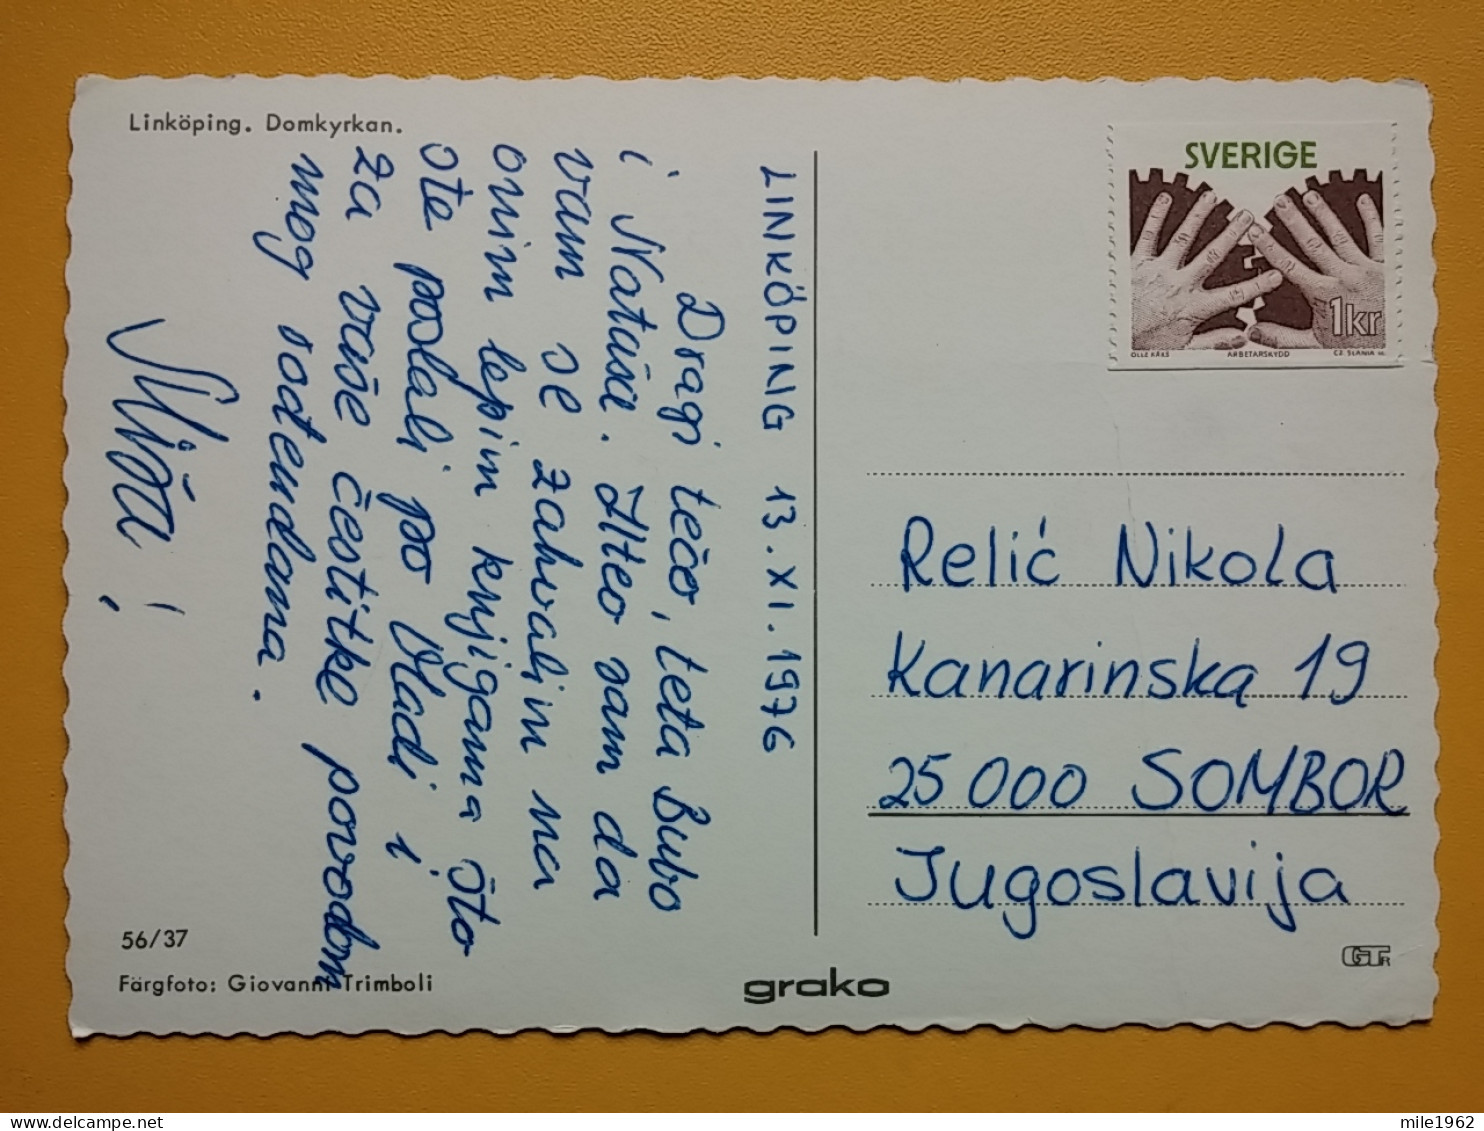 Linköping. Domkyrkan.
LINKÖPING 13.XI.1976
Dragi tečo, teta Bubo
i Nataša. Hteo sam da
vam se zahvalim na
ovim lepim knjigama što
ste poslali po Vladi i
za vaše čestitke povodom
mog rođendana.
Miša!
56/37
Färgfoto: Giovanni Trimboli
grako
SVERIGE
1kr
OLLE KÅKS ARBETARSKYDD CZ. SLANIA SC.
Relić Nikola
Kanarinska 19
25000 SOMBOR
Jugoslavija
GTR
mile1962